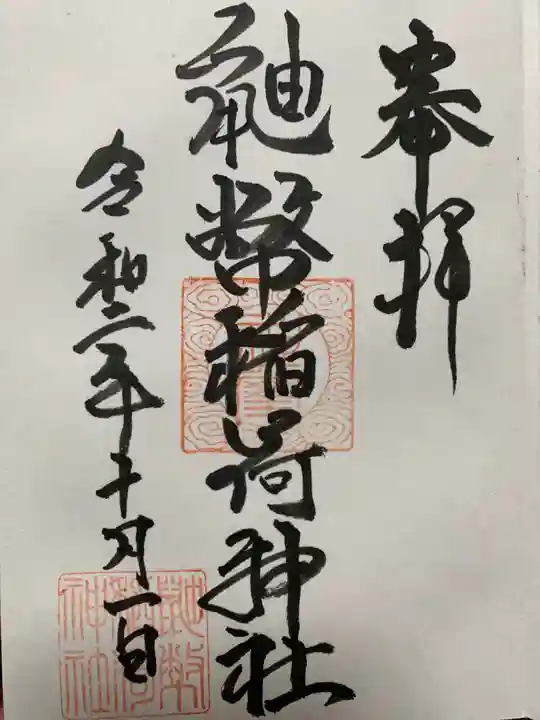 奉拝
鼬幣稲荷神社
令和二年十月二日
鼬幣
稲荷
神社